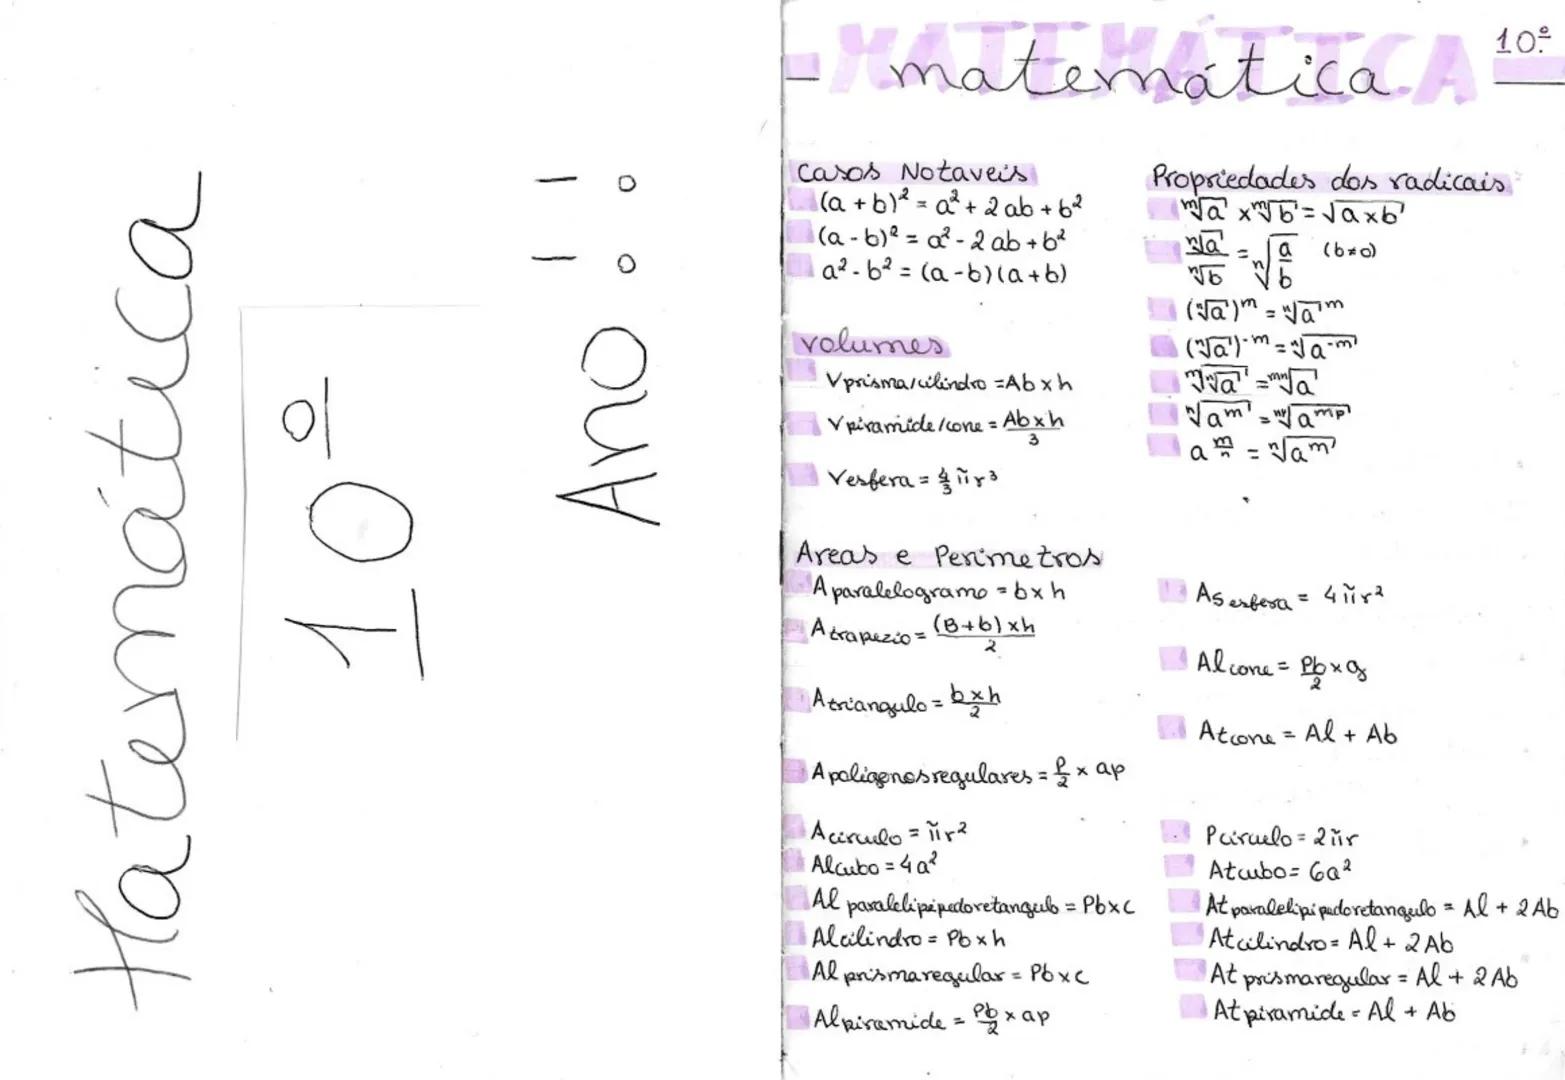 Matemática
10º
Ano!!
MATEMÁTICA
matemática
10º
Casos Notaveis
(a + b)² = a² + 2 ab + b²
(a - b)² = a² - 2 ab + b²
a² - b² = (a - b)(a + b)
Volumes
Vprisma/cilindro = Ab x h
Vpiramide/cone = Ab x h / 3
Vesfera = 4/3 π r³
Propriedades dos radicais
ᵐ√a x ᵐ√b = √a x b
ⁿ√a / ⁿ√b = ⁿ√a/b (b≠0)
(ⁿ√a)ᵐ = ⁿ√aᵐ
(ⁿ√a)⁻ᵐ = ⁿ√a⁻ᵐ
ᵐ√ⁿ√a = ᵐⁿ√a
ⁿ√aᵐ = ⁿᵖ√aᵐᵖ
a^m/n = ⁿ√aᵐ
Areas e Perimetros
A paralelogramo = b x h
A trapezio = (B + b) x h / 2
A triangulo = b x h / 2
A poligenos regulares = P/2 x ap
A circulo = π r²
Al cubo = 4 a²
Al paralelipipedo retangulo = Pb x c
Al cilindro = Pb x h
Al prisma regular = Pb x c
Al piramide = Pb/2 x ap
As esfera = 4 π r²
Al cone = Pb/2 x g
At cone = Al + Ab
P circulo = 2 π r
At cubo = 6a²
At paralelipipedo retangulo = Al + 2 Ab
At cilindro = Al + 2 Ab
At prisma regular = Al + 2 Ab
At piramide = Al + Ab